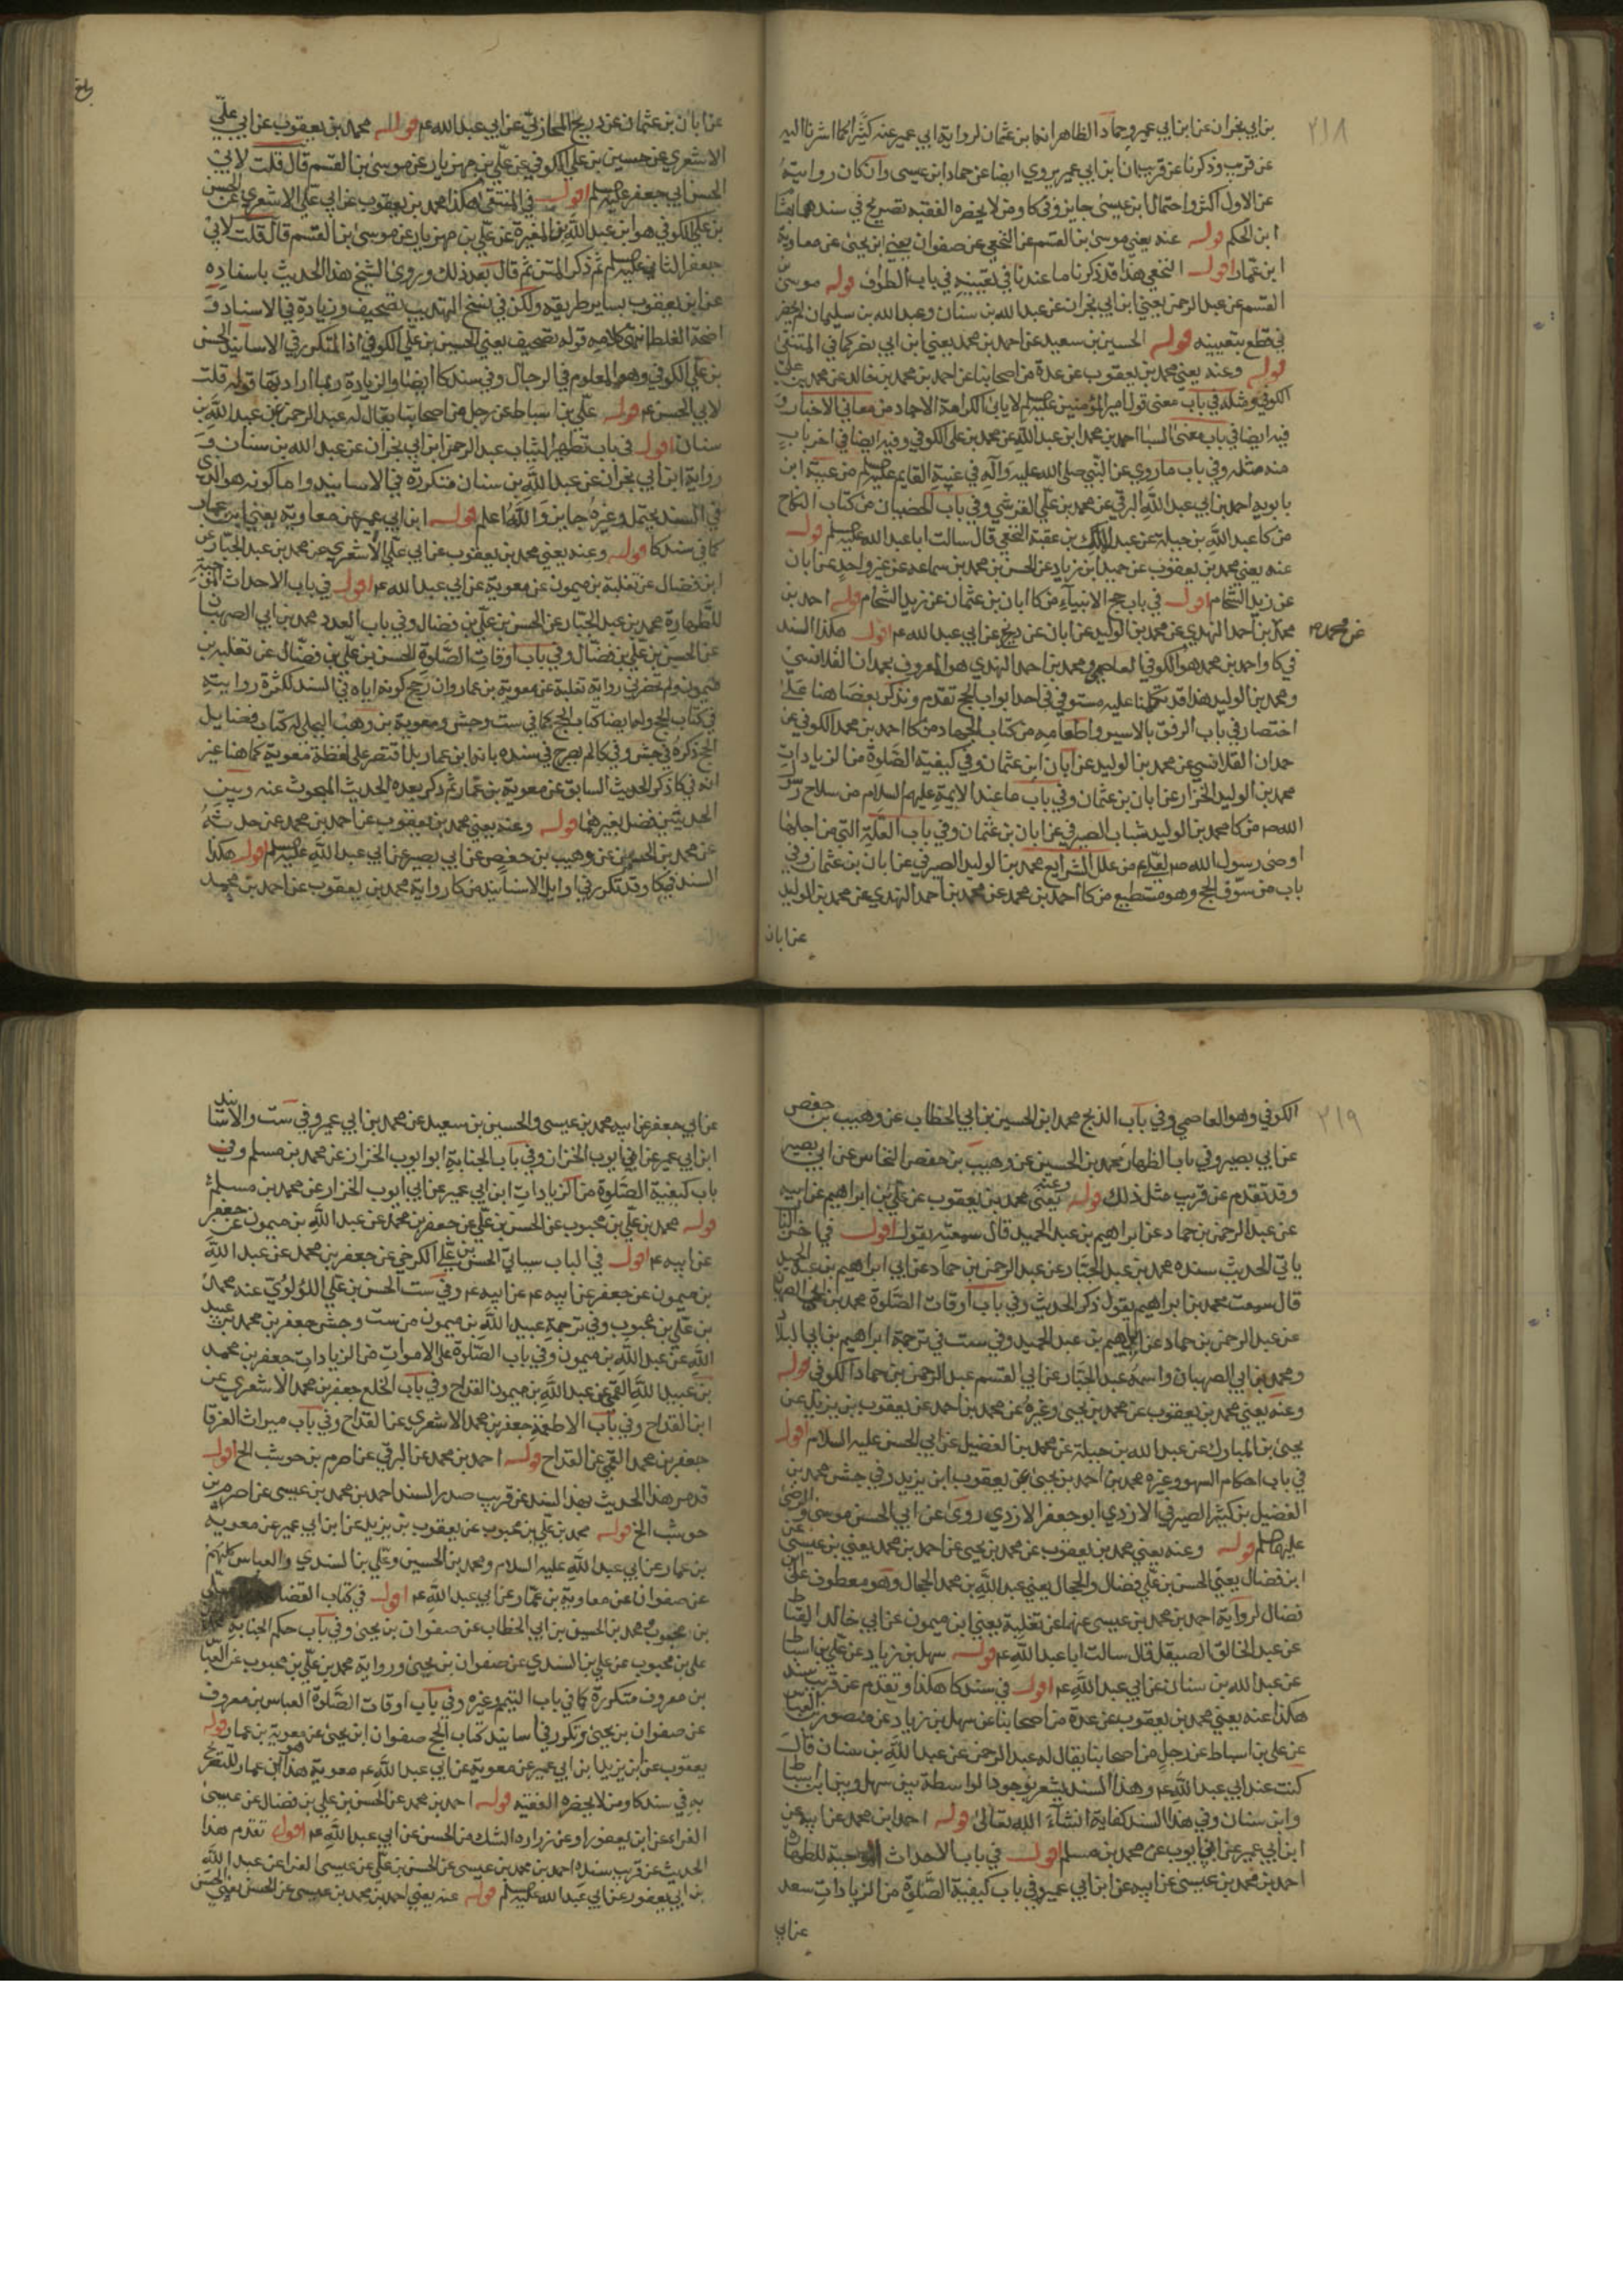 ٢١٨
بن ابي نجران عن ابن ابي عمير وحماد الظاهر انه ابن عثمان لرواية ابي عمير عنه كثيرا كما اشرنا اليه
عن قريب وذكرنا عن قريب ان ابن ابي عمير يروي ايضا عن حماد ابن عيسى وان كان روايته
عن الاول اكثر واحتمال ابن عيسى جايز وفي كا ومن لا يحضره الفقيه تصريح في سندهما بهشام
ابن الحكم قوله عنه يعني موسى بن القسم عن النخعي عن صفوان يعني ابن يحيى عن معاوية
ابن عمار اقول النخعي هذا قد ذكرنا ما عندنا في تعيينه في باب الطواف قوله موسى بن
القسم عن عبد الرحمن يعني ابن ابي نجران عن عبد الله بن سنان وعبد الله بن سليمان لم يحضر
في قطع بتعيينه قوله الحسين بن سعيد عن احمد بن محمد يعني ابن ابي نصر كما في المنتقى
قوله وعنه يعني محمد بن يعقوب عن عدة من اصحابنا عن احمد بن محمد بن خالد عن محمد بن علي
الكوفي ومثله في باب معنى قول امير المؤمنين عليه السلم لا يابى الكرامة الا حمار من معاني الاخبار و
فيه ايضا في باب معنى السبا احمد بن محمد ابن عبد الله عن محمد بن علي الكوفي وفيه ايضا في اخر باب
منه مثله وفي باب ما روي عن النبي صلى الله عليه واله في غيبة القايم عليه السلم من غيبة ابن
بابويه احمد بن ابي عبد الله البرقي عن محمد بن علي القرشي وفي باب الخضبان من كتاب النكاح
من كا عبد الله بن جبلة عن عبد الملك بن عقبة النخعي قال سالت ابا عبد الله عليه السلم قوله
عنه يعني محمد بن يعقوب عن حميد ابن زياد عن الحسن بن محمد بن سماعه عن غير واحد عن ابان
عن زيد الشحام اقول في باب حج الانبياء من كا ابان بن عثمان عن زيد الشحام قوله احمد بن
عن محمد صح
محمد بن احمد النهدي عن محمد بن الوليد عن ابان عن ذريح عن ابي عبد الله ع اقول هكذا السند
في كا واحمد بن محمد هو الكوفي العاصمي ومحمد بن احمد النهدي هو المعروف بحمدان القلانسي
ومحمد بن الوليد هذا قد تكلمنا عليه مستوفى في احد ابواب الحج تقدم ونذكر بعضا هنا على
اختصار في باب الرفق بالاسير واطعامه من كتاب الجهاد من كا احمد بن محمد الكوفي عن
حمدان القلانسي عن محمد بن الوليد عن ابان ابن عثمان وفي كيفية الصلوة من الزيادات
محمد بن الوليد الخزاز عن ابان بن عثمان وفي باب ما عند الايمة عليهم السلام من سلاح رسول
الله ص من كا محمد بن الوليد شباب الصيرفي عن ابان بن عثمان وفي باب العلة التي من اجلها
اوصى رسول الله ص لعلي ع من علل الشرايع محمد بن الوليد الصيرفي عن ابان بن عثمان وفي
باب من سوف الحج وهو مستطيع من كا احمد بن محمد عن محمد بن احمد النهدي عن محمد بن الوليد
عن ابان
عن ابان بن عثمان عن ذريح المحاربي عن ابي عبد الله ع قوله محمد بن يعقوب عن ابي علي
الاشعري عن حسين بن علي الكوفي عن علي بن مهزيار عن موسى بن القسم قال قلت لابي
الحسن ابي جعفر عليه السلم اقول في المنتقى هكذا محمد بن يعقوب عن ابي علي الاشعري عن الحسن
بن علي الكوفي هو ابن عبد الله بن المغيرة عن علي بن مهزيار عن موسى بن القسم قال قلت لابي
جعفر الثاني عليه السلم ثم ذكر المتن ثم قال بعد ذلك وروى الشيخ هذا الحديث باسناده
عن ابن يعقوب بساير طريقه ولكن في نسخ التهذيب تصحيف وزيادة في الاسناد و
اضحة الغلط انتهى كلامه قوله تصحيف يعني الحسين بن علي الكوفي اذ المتكرر في الاسانيد الحسن
بن علي الكوفي وهو المعلوم في الرجال وفي سند كا ايضا والزيادة ربما اراد بها قوله قلت
لابي الحسن ع قوله علي بن اسباط عن رجل من اصحابنا يقال له عبد الرحمن عن عبد الله بن
سنان اقول في باب تطهير الثياب عبد الرحمن ابن ابي نجران عن عبد الله بن سنان و
رواية ابن ابي نجران عن عبد الله بن سنان متكررة في الاسانيد واما كونه هو الذي
في السند يحتمل وغيره جايز والله اعلم قوله ابن ابي عمير عن معاوية يعني ابن عمار
كما في سند كا قوله وعنه يعني محمد بن يعقوب عن ابي علي الاشعري عن محمد بن عبد الجبار عن
ابن فضال عن ثعلبة بن ميمون عن معوية عن ابي عبد الله ع اقول في باب الاحداث الموجبة
للطهارة محمد بن عبد الجبار عن الحسن بن علي بن فضال وفي باب العدد محمد بن ابي الصهبان
عن الحسن بن علي بن فضال وفي باب اوقات الصلوة الحسن بن علي بن فضال عن ثعلبة بن
ميمون ولم تحضرني رواية ثعلبة عن معوية بن عمار وان رجح كونه اياه في السند لكثرة روايته
في كتاب الحج وله ايضا كتاب الحج كما في ست وجش ومعوية بن وهب البجلي له كتاب فضايل
الحج ذكره في جش وفي كا لم يصرح في سنده بانه ابن عمار بل اقتصر على لفظة معوية كما هنا غير
انه في كا ذكر الحديث السابق عن معوية بن عمار ثم ذكر بعده الحديث المبحوث عنه وبين
الحديثين فصل بغيرهما قوله وعنه يعني محمد بن يعقوب عن احمد بن محمد عن حدثه
عن محمد بن الحسين عن وهيب بن حفص عن ابي بصير عن ابي عبد الله عليه السلم اقول هكذا
السند في كا وقد تكرر في اوايل الاسانيد من كا رواية محمد بن يعقوب عن احمد بن محمد
٢١٩
الكوفي وهو العاصمي وفي باب الذبح محمد ابن الحسين بن ابي الخطاب عن وهيب بن حفص
عن ابي بصير وفي باب الظهار محمد بن الحسين عن وهيب بن حفص النخاس عن ابي بصير
وقد تقدم عن قريب مثل ذلك قوله وعنه يعني محمد بن يعقوب عن علي بن ابراهيم عن ابيه
عن عبد الرحمن بن حماد عن ابراهيم بن عبد الحميد قال سمعته يقول اقول في اخر الباب
ياتي الحديث سنده محمد بن عبد الجبار عن عبد الرحمن بن حماد عن ابي ابراهيم بن عبد الحميد
قال سمعت محمد بن ابراهيم يقول ذكر الحديث وفي باب اوقات الصلوة محمد بن ابي الصهبان
عن عبد الرحمن بن حماد عن ابراهيم بن عبد الحميد وفي ست في ترجمة ابراهيم بن ابي البلاد
ومحمد بن ابي الصهبان واسمه عبد الجبار عن ابي القسم عبد الرحمن بن حماد الكوفي قوله
وعنه يعني محمد بن يعقوب عن محمد بن يحيى وغيره عن محمد بن احمد عن يعقوب بن يزيد عن
يحيى بن المبارك عن عبد الله بن جبلة عن محمد بن الفضيل عن ابي الحسن عليه السلام اقول
في باب احكام السهو وغيره محمد بن احمد بن يحيى عن يعقوب ابن يزيد وفي جش محمد بن
الفضيل بن كثير الصيرفي الازدي ابو جعفر الازدي روى عن ابي الحسن موسى والرضا
عليهما السلم قوله وعنه يعني محمد بن يعقوب عن محمد بن يحيى عن احمد بن محمد يعني بن عيسى عن
ابن فضال يعني الحسن بن علي فضال والحجال يعني عبد الله بن محمد الحجال وهو معطوف على ابن
فضال لرواية احمد بن محمد بن عيسى عنهما عن ثعلبة يعني ابن ميمون عن ابي خالد القماط
عن عبد الخالق الصيقل قال سالت ابا عبد الله ع قوله سهل بن زياد عن علي بن اسباط
عن عبد الله بن سنان عن ابي عبد الله ع اقول في سند كا هكذا وتقدم عن قريب سند
هكذا عنه يعني محمد بن يعقوب عن عدة من اصحابنا عن سهل بن زياد عن منصور بن العباس
عن علي بن اسباط عن رجل من اصحابنا يقال له عبد الرحمن عن عبد الله بن سنان قال
كنت عند ابي عبد الله ع وهذا السند يشعر بوجود الواسطة بين سهل وبين ابن اسباط
وابن سنان وفي هذا السند كفاية انشاء الله تعالى قوله احمد ابن محمد عن ابيه عن
ابن ابي عمير عن ابي ايوب عن محمد بن مسلم اقول في باب الاحداث الموجبة للطهارة
احمد بن محمد بن عيسى عن ابيه عن ابن ابي عمير وفي باب كيفية الصلوة من الزيادات سعد
عن ابي
عن ابي جعفر عن ابيه محمد بن عيسى والحسين بن سعيد عن محمد بن ابي عمير وفي ست والاسانيد
ابن ابي عمير عن ابي ايوب الخزاز وفي باب الجنابة ابو ايوب الخزاز عن محمد بن مسلم وفي
باب كيفية الصلوة من الزيادات ابن ابي عمير عن ابي ايوب الخزاز عن محمد بن مسلم
قوله محمد بن علي بن محبوب عن الحسن بن علي عن جعفر بن محمد عن عبد الله بن ميمون عن جعفر
عن ابيه ع اقول في الباب سياتي الحسن بن علي الكرخي عن جعفر بن محمد عن عبد الله
بن ميمون عن جعفر عن ابيه ع عن ابيه ع وفي ست الحسن بن علي اللؤلوي عنه محمد
بن علي بن محبوب وفي ترجمة عبيد الله بن ميمون من ست وجش جعفر بن محمد بن عبيد
الله عن عبد الله بن ميمون وفي باب الصلوة على الاموات من الزيادات جعفر بن محمد
بن عبيد الله القمي عن عبد الله بن ميمون القداح وفي باب الخلع جعفر بن محمد الاشعري عن
ابن القداح وفي باب الاطعمة جعفر بن محمد الاشعري عن القداح وفي باب ميراث الغرقا
جعفر بن محمد القمي عن القداح قوله احمد بن محمد عن البرقي عن اصرم بن حوشب الخ اقول
قد مر هذا الحديث بهذا السند عن قريب صدر السند احمد بن محمد بن عيسى عن اصرم بن
حوشب الخ قوله محمد بن علي بن محبوب عن يعقوب بن يزيد عن ابن ابي عمير عن معوية
بن عمار عن ابي عبد الله عليه السلام ومحمد بن الحسين وعلي بن السندي والعباس كلهم
عن صفوان عن معاوية بن عمار عن ابي عبد الله ع اقول في كتاب القضا
بن محبوب محمد بن الحسين بن ابي الخطاب عن صفوان بن يحيى وفي باب حكم الجنابة محمد
علي بن محبوب عن علي بن السندي عن صفوان بن يحيى ورواية محمد بن علي بن محبوب عن العباس
بن معروف متكررة كما في باب التيمم وغيره وفي باب اوقات الصلوة العباس بن معروف
عن صفوان بن يحيى وتكرر في اسانيد كتاب الحج صفوان ابن يحيى عن معوية بن عمار قوله
يعقوب عن ابن يزيد ابن ابي عمير عن معوية عن ابي عبد الله ع معوية هذا هو ابن عمار للتصريح
به في سند كا ومن لا يحضره الفقيه قوله احمد بن محمد عن الحسن بن علي بن فضال عن عيسى
الفراء عن ابن يعفور او عن زراره الشك من الحسن عن ابي عبد الله ع اقول تقدم هذا
الحديث عن قريب سنده احمد بن محمد بن عيسى عن الحسن بن علي عن عيسى الفرا عن عبد الله
بن ابي يعفور عن ابي عبد الله عليه السلم قوله عنه يعني احمد بن محمد بن عيسى عن الحسن